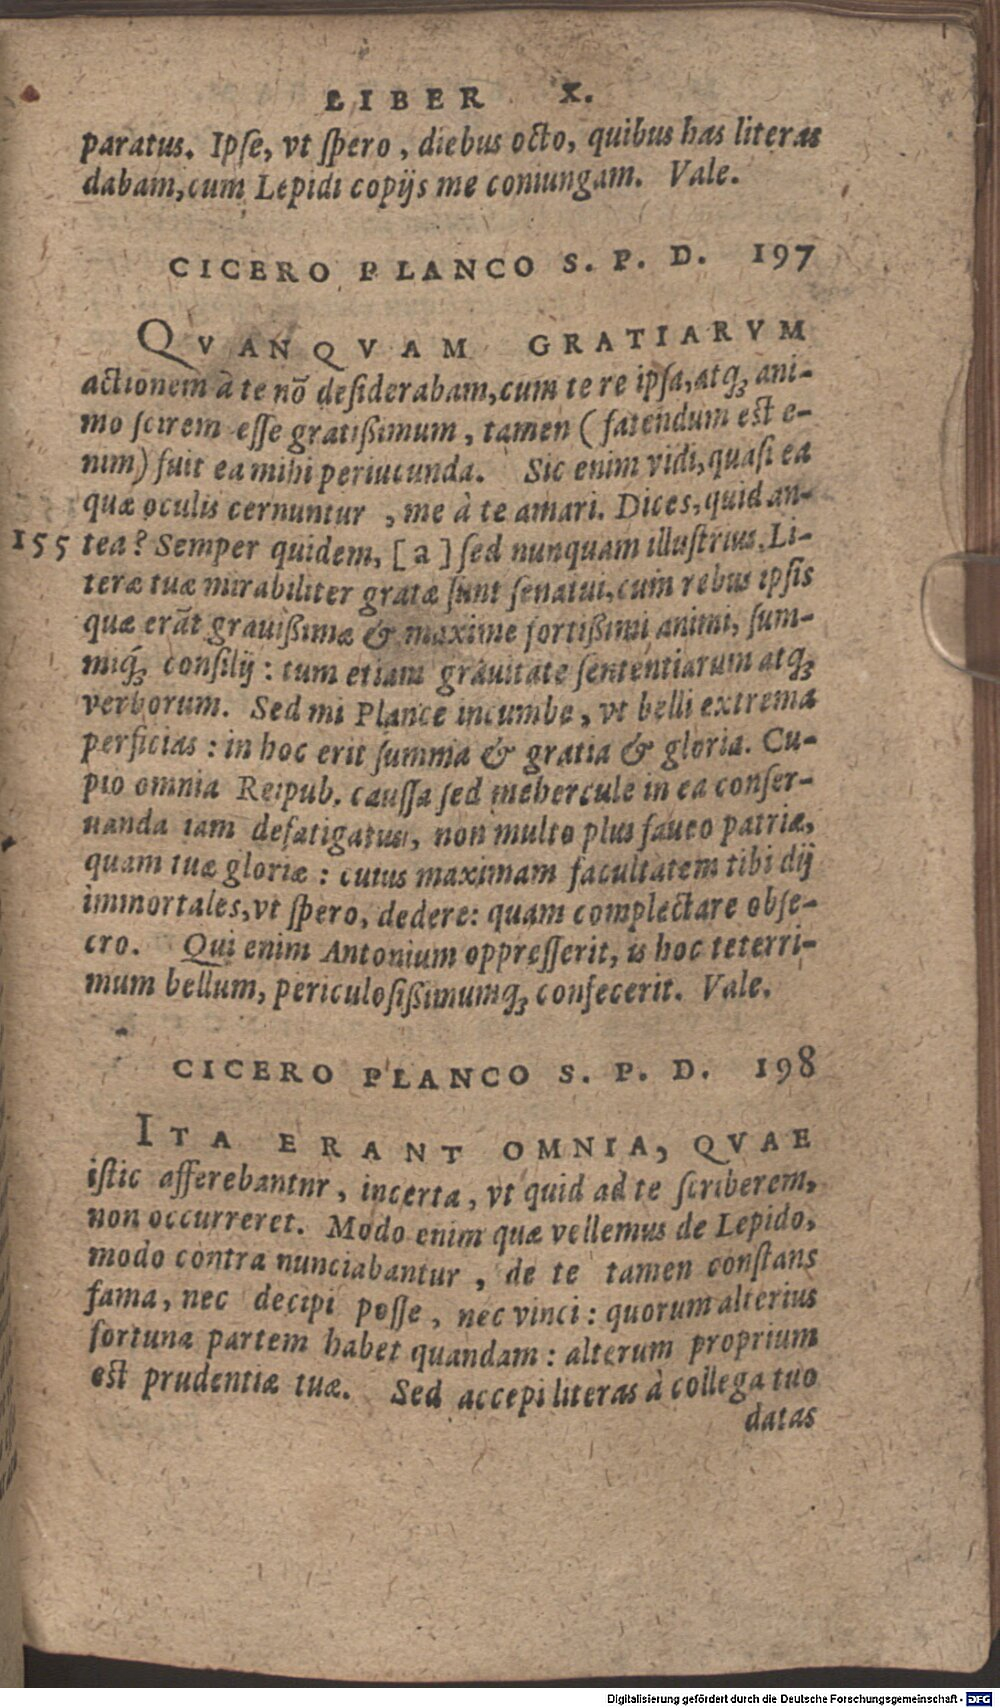 LIBER X.
paratus. Ipse, vt spero, diebus octo, quibus has literas
dabam, cum Lepidi copijs me coniungam. Vale.
CICERO PLANCO S. P. D. 197
QVANQVAM GRATIARVM
actionem à te nō desiderabam, cum te re ipsa, atq; ani-
mo scirem esse gratißimum, tamen (fatendum est e-
nim) fuit ea mihi periucunda. Sic enim vidi, quasi ea
quæ oculis cernuntur, me à te amari. Dices, quid an-
155 tea? Semper quidem, [a] sed nunquam illustrius. Li-
teræ tuæ mirabiliter gratæ sunt senatui, cum rebus ipsis
quæ erāt grauißimæ & maxime fortißimi animi, sum-
miq́; consilij: tum etiam grauitate sententiarum atq;
verborum. Sed mi Plance incumbe, vt belli extrema
perficias: in hoc erit summa & gratia & gloria. Cu-
pio omnia Reipub. caussa sed mehercule in ea conser-
uanda iam defatigatus, non multo plus faueo patriæ,
quam tuæ gloriæ: cuius maximam facultatem tibi dij
immortales, vt spero, dedere: quam complectare obse-
cro. Qui enim Antonium oppresserit, is hoc teterri-
mum bellum, periculosißimumq; confecerit. Vale.
CICERO PLANCO S. P. D. 198
ITA ERANT OMNIA, QVAE
istic afferebantnr, incerta, vt quid ad te scriberem,
non occurreret. Modo enim quæ vellemus de Lepido,
modo contra nunciabantur, de te tamen constans
fama, nec decipi posse, nec vinci: quorum alterius
fortuna partem habet quandam: alterum proprium
est prudentiæ tuæ. Sed accepi literas à collega tuo
datas
Digitalisierung gefördert durch die Deutsche Forschungsgemeinschaft - DFG